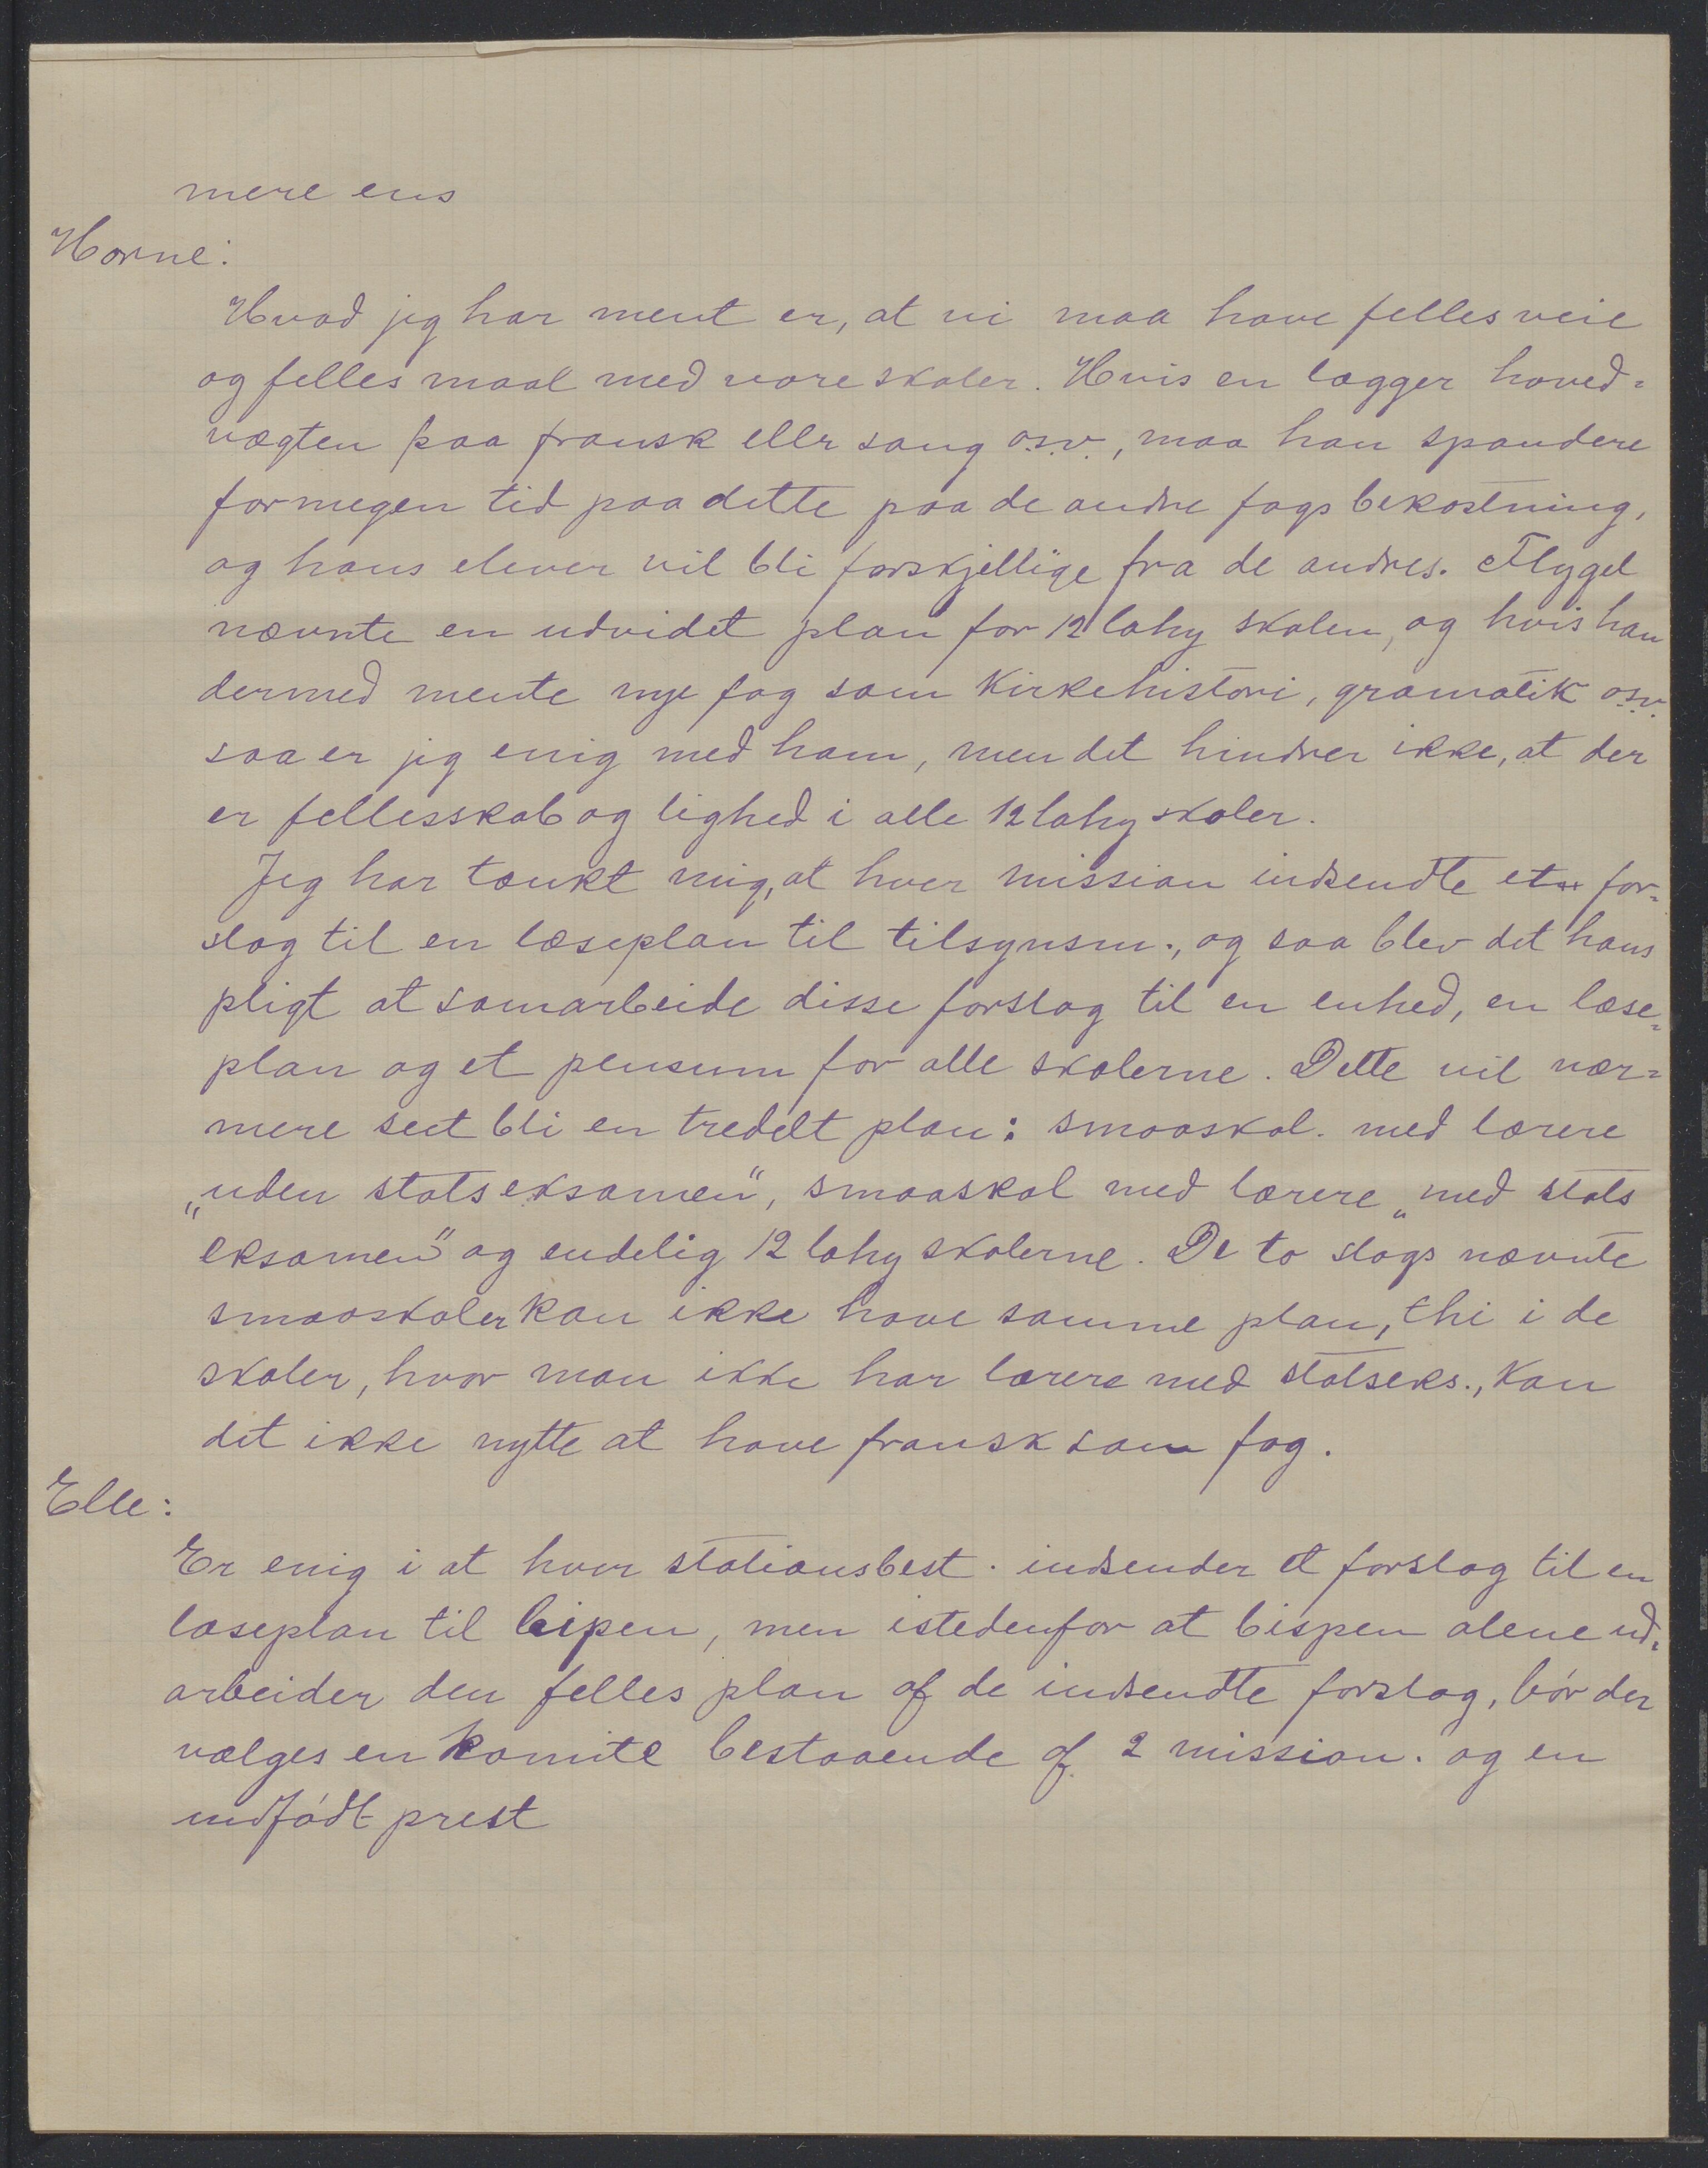 mere ens
Horne:
Hvad jeg har ment er, at vi maa have felles veie
og felles maal med vore skoler. Hvis en lægger hoved=
vægten paa fransk ellr sang o.s.v., maa han spandere
formegen tid paa dette paa de andre fags bekostning,
og hans elever vil bli forskjellige fra de andres. Flygel
nævnte en udvidet plan for 12 lahy skolen, og hvis han
dermed mente nye fag som Kirkehistori, gramatik o.s.v.
saa er jeg enig med ham, men det hindrer ikke, at der
er fellesskab og lighed i alle 12 lahy skoler.
Jeg har tænkt mig, at hver mission indsendte et for=
slag til en læseplan til tilsynsm., og saa blev det hans
pligt at samarbeide disse forslag til en enhed, en læse=
plan og et pensum for alle skolerne. Dette vil nær=
mere seet bli en tredelt plan: smaaskol. med lærere
„uden statseksamen", smaaskol med lærere „med stats
eksamen" og endelig 12 lahy skolerne. De to slags nævnte
smaaskoler kan ikke have samme plan, thi i de
skoler, hvor man ikke har lærere med statseks., kan
det ikke nytte at have fransk som fag.
Elle:
Er enig i at hver stationsbest. indsender et forslag til en
læseplan til bipen, men istedenfor at bispen alene ud=
arbeider den felles plan af de indsendte forslag, bør der
vælges en komite bestaaende af 2 mission. og en
indfødt prest